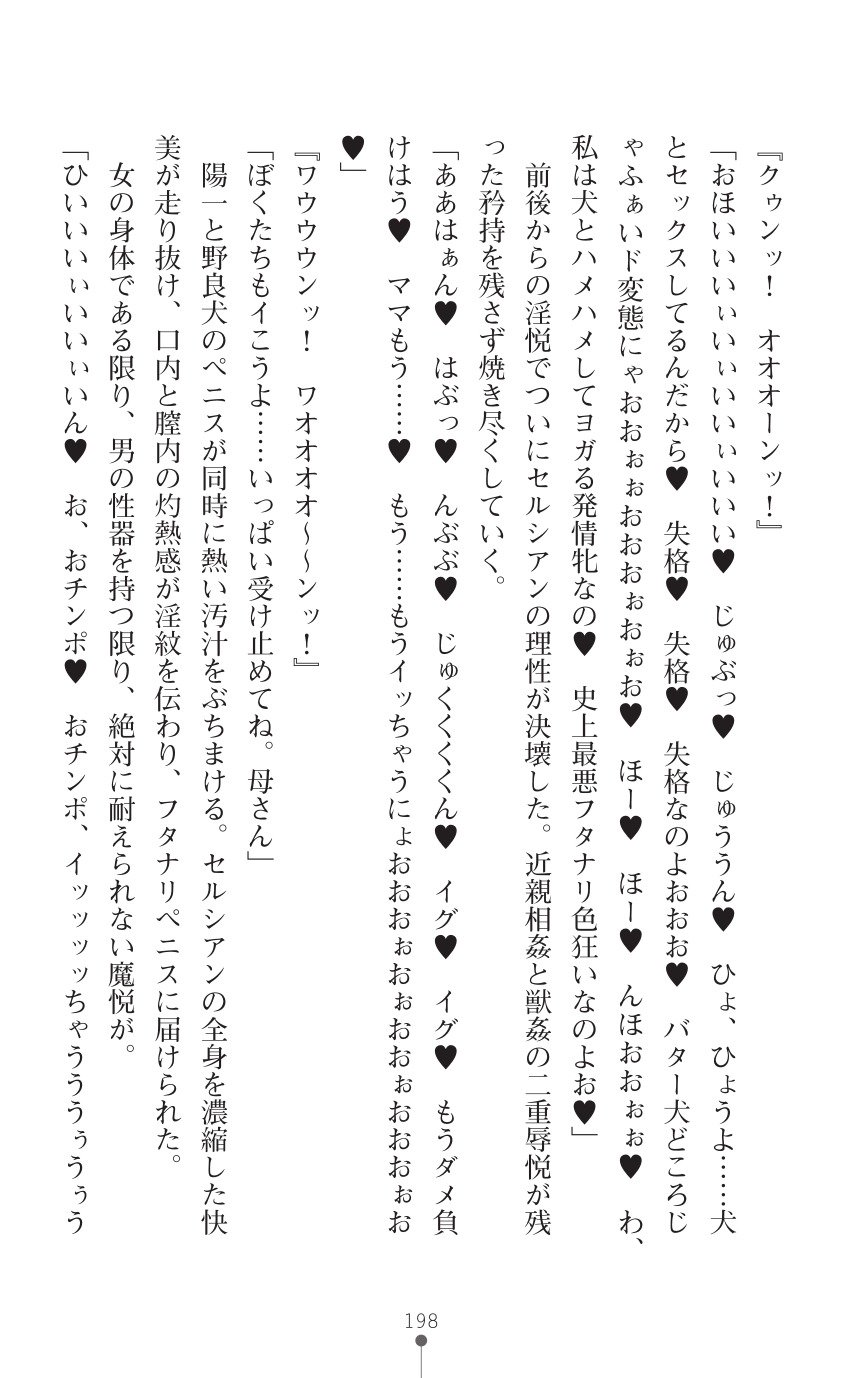 『クゥンッ！　オオオーンッ！』
「おほいいいぃいぃいいぃいいい♥　じゅぶっ♥　じゅううん♥　ひょ、ひょうよ……犬
とセックスしてるんだから♥　失格♥　失格♥　失格なのよおおお♥　バター犬どころじ
ゃふぁいド変態にゃおおぉぉおおおぉおぉお♥　ほー♥　ほー♥　んほおおぉぉ♥　わ、
私は犬とハメハメしてヨガる発情牝なの♥　史上最悪フタナリ色狂いなのよお♥」
　前後からの淫悦でついにセルシアンの理性が決壊した。近親相姦と獣姦の二重辱悦が残
った矜持を残さず焼き尽くしていく。
「ああはぁん♥　はぶっ♥　んぶぶ♥　じゅくくくん♥　イグ♥　イグ♥　もうダメ負
けはう♥　ママもう……♥　もう……もうイッちゃうにょおおおぉおぉおおぉおおおぉお
♥」
『ワウウウンッ！　ワオオオオ～～ンッ！』
「ぼくたちもイこうよ……いっぱい受け止めてね。母さん」
　陽一と野良犬のペニスが同時に熱い汚汁をぶちまける。セルシアンの全身を濃縮した快
美が走り抜け、口内と膣内の灼熱感が淫紋を伝わり、フタナリペニスに届けられた。
　女の身体である限り、男の性器を持つ限り、絶対に耐えられない魔悦が。
「ひいいいぃいいぃいん♥　お、おチンポ♥　おチンポ、イッッッッちゃうううぅうぅう
198